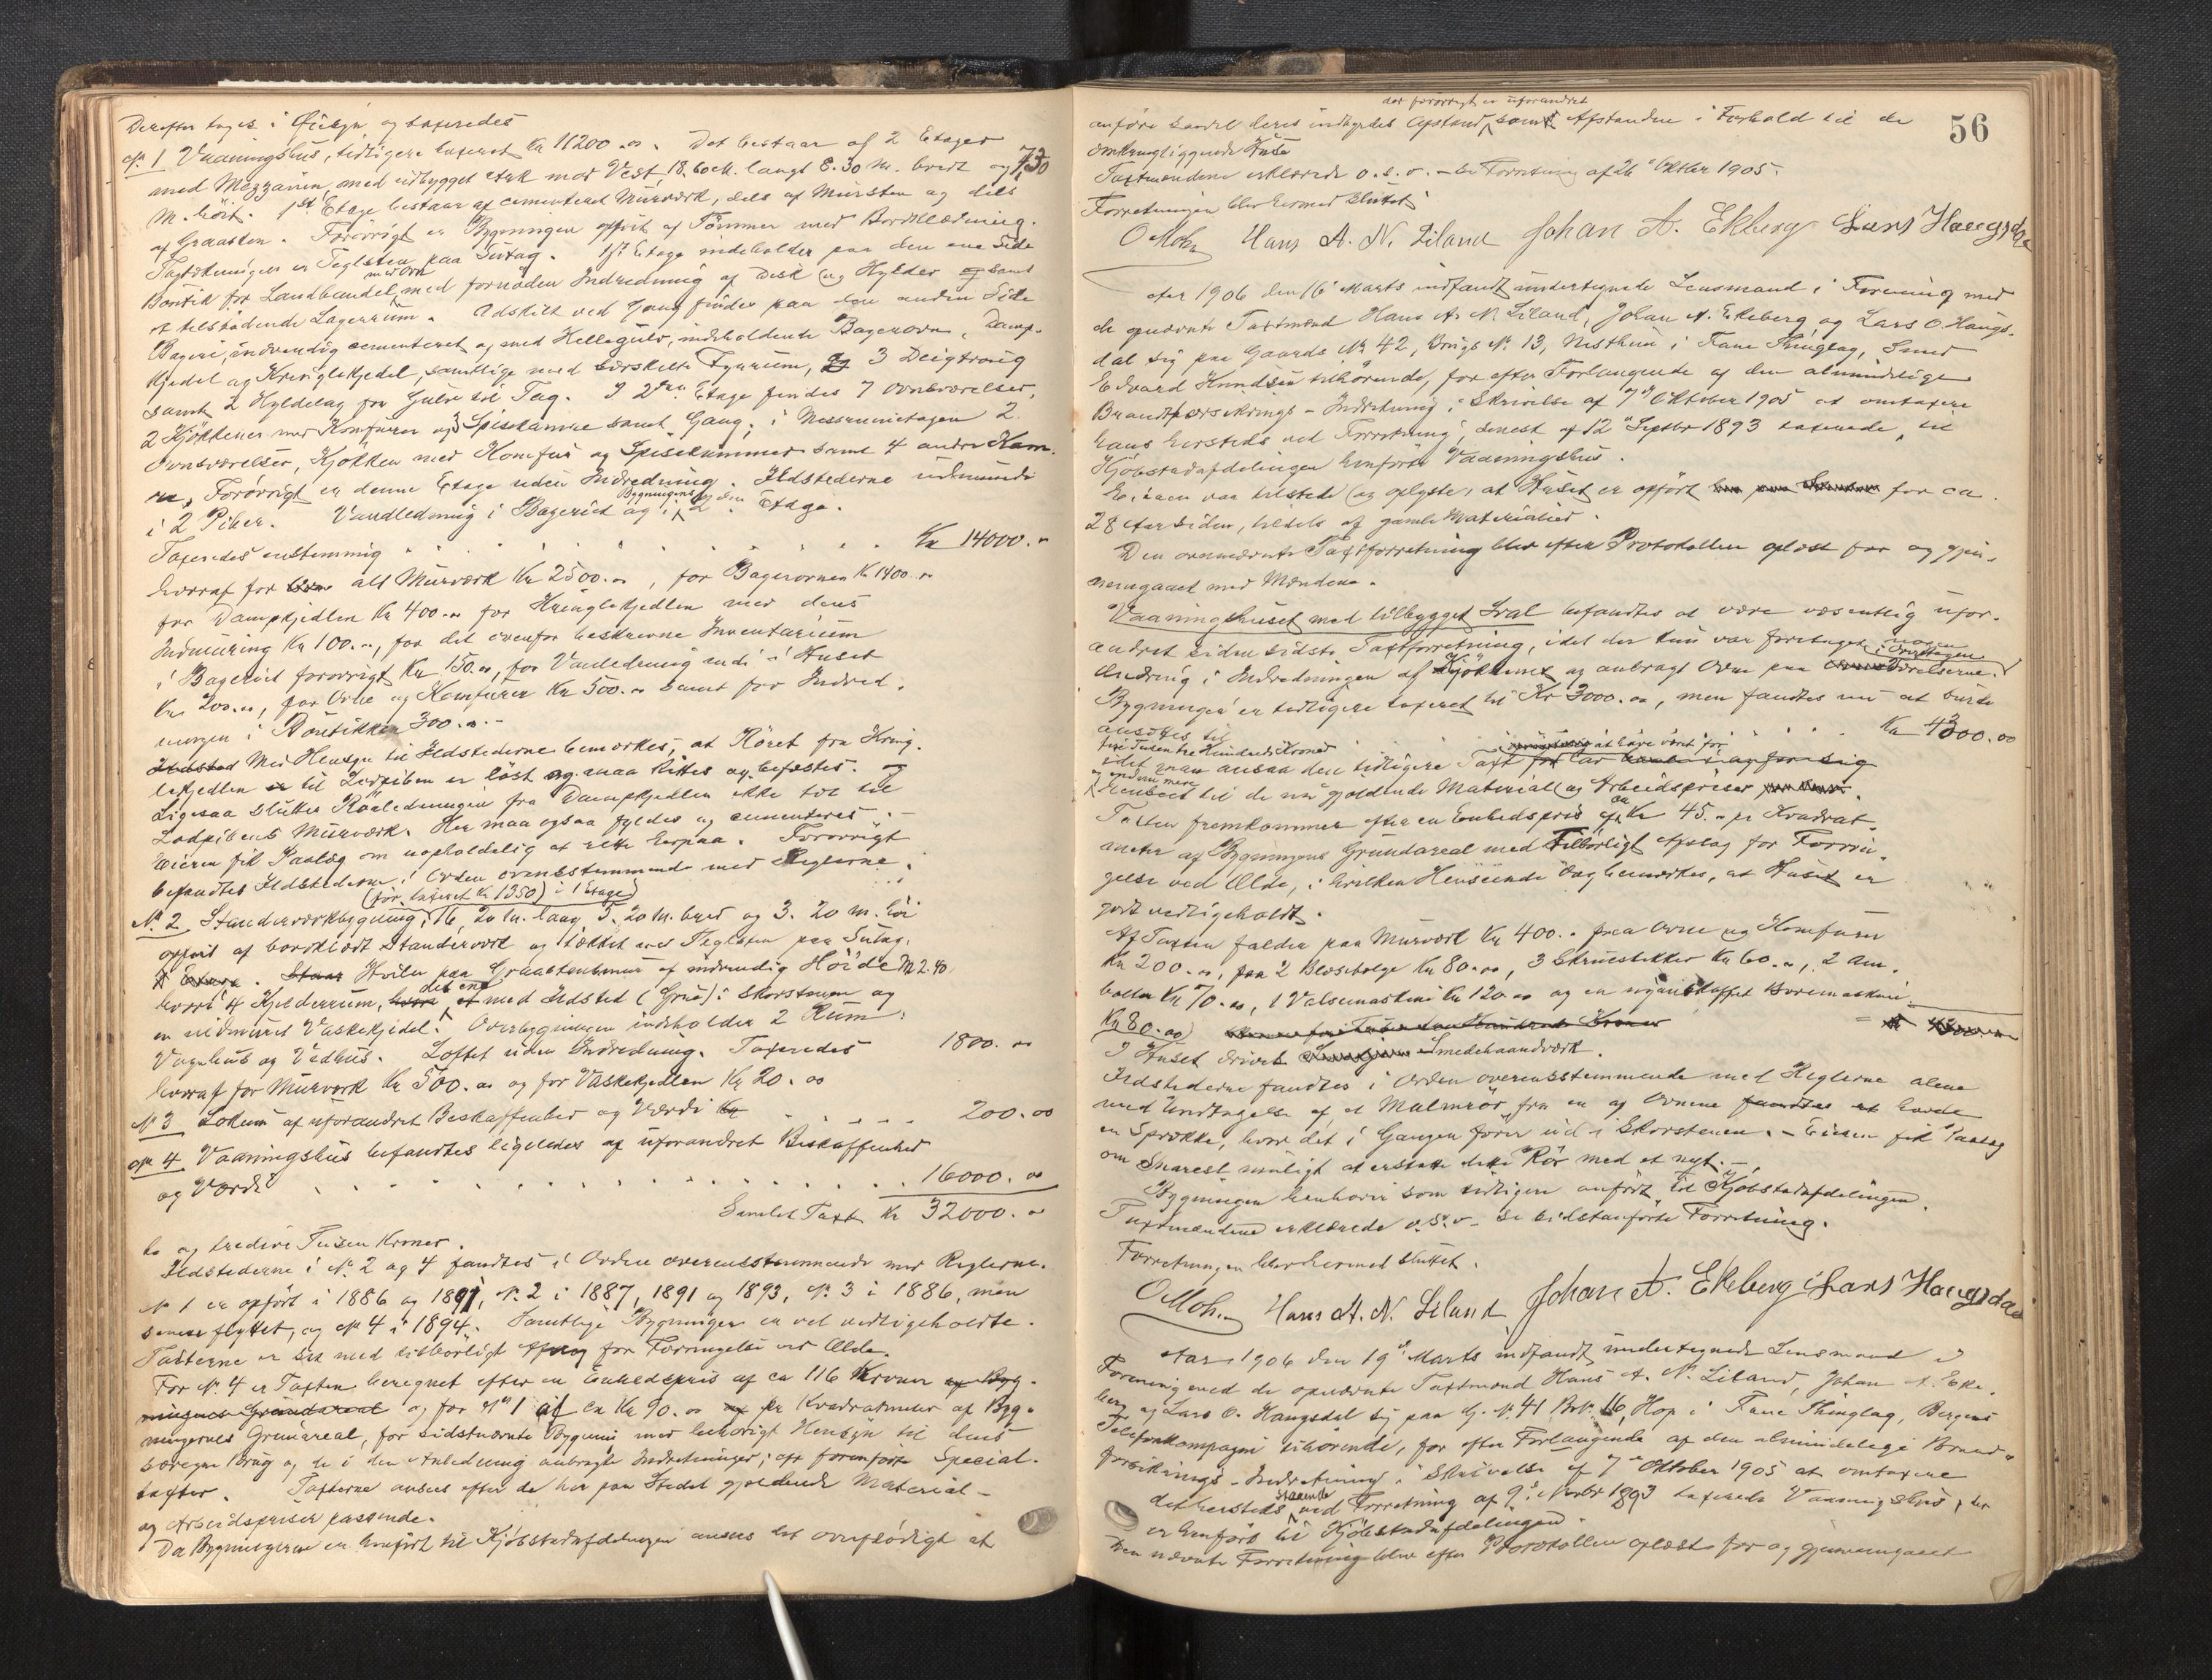 Derefter toges i Øiesyn og taxeredes
No 1 Vaaningshus, tidligere taxeret Kr 11200.00. Det bestaar af 2 Etager
med Mezzanin, med udbygget Ark mod Vest, 18.60 M. langt 8.30 M. bredt og 7,30
M. høit. 1ste Etage bestaar af cementeret Murværk, dels af Mursten og dels
af Graasten. Forøvrigt er Bygningen opført af Tømmer med Bordklædning.
Tagtækningen er Teglsten paa Sutag. 1ste Etage indeholder paa den ene Side
Boutik for Landhandel med Ovn med fornøden Indredning af Disk og Hylder samt
et tilstødende Lagerrum. Adskilt ved Gang findes paa den anden Side
Bageri, indvendig cementeret og med Hellegulv, indeholdende Bagerovn, Damp-
kjedel og Kringlekjedel, samtlige med særskilte Fyrrum, 3 Deigtroug
samt 2 Hyldelag fra Gulv til Tag. I 2den Etage findes 7 Ovnsværelser,
2 Kjøkkener med Komfurer og Spisekamre samt Gang; i Messaninetagen 2
Ovnsværelser, Kjøkken med Komfur og Spisekammer samt 4 andre Kam-
re, Forøvrigt er denne Etage uden Indredning. Ildstederne udmunde
i 2 Piber. Vandledning i Bageriet og i Bygningens 2den Etage.
Taxeredes enstemmig . . . . . . . Kr 14000.00
hvoraf for alt Murværk Kr 2500.00, for Bagerovnen Kr 1400.00
for Dampkjedlen Kr 400.00 for Kringlekjedlen med dens
Indmuring Kr 100.00, for det ovenfor beskrevne Inventarium
i Bageriet forøvrigt Kr 150.00, for Vandledning ind i Huset
Kr 200.00, for Ovne og Komfurer Kr 500.00 samt for Indred-
ningen i Boutikken 300.00.-
Med Hensyn til Ildstederne bemærkes, at Røret fra Kring-
lekjedlen til Ledpiben er løst og maa kittes og befæstes.
Ligesaa slutter Rørledningen fra Dampkjedlen ikke tæt til
Ledpibens Murværk. Her maa ogsaa fyldes og cementeres.
Eieren fik Paalæg om uopholdelig at rette herpaa. Forøvrigt
befandtes Ildstederne i Orden overensstemmende med Reglerne.
(før taxeret Kr 1350) i 1 Etage
No 2 Standerværkbygning, 16,20 M. lang 5.20 M. bred og 3.20 M. høi
opført af bordklædt Standerværk og tækket med Teglsten paa Sutag.
Hviler paa Graastensmur af indvendig Høide M 2.40,
hvori 4 Kjelderrum, det ene med Ildsted (Grue) i Skorstenen og
en indmuret Vaskekjedel. Overbygningen indeholder 2 Rum:
Vognhus og Vedhus. Loftet uden Indredning. Taxeredes 1800.00
hvoraf for Murværk Kr 500.00 og for Vaskekjedlen Kr 20.00
No 3 Lokum af uforandret Beskaffenhed og Værdi . . . . 200.00
No 4 Vaaningshus befandtes ligeledes af uforandret Beskaffenhed
og Værdi . . . . . . . . . . 16000.00
Samlet Taxt Kr 32000.00
to og tredive Tusen Kroner.
Ildstederne i No 2 og 4 fandtes i Orden overensstemmende med Reglerne.
No 1 er opført i 1886 og 1891, No 2 i 1887, 1891 og 1893, No 3 i 1886, men
senere flyttet, og No 4 i 1894. Samtlige Bygninger er vel vedligeholdte.
Taxterne er sat med tilbørligt Afslag for Forringelse ved Ælde.
For No 4 er Taxten beregnet efter en Enhedspris af ca 116 Kroner af Byg-
ningens Grundareal og for No 1 af ca Kr 90.00 pr Kvadratmeter af Byg-
ningernes Grundareal, for sidstnævnte Bygning med behørigt Hensyn til dens
særegne Brug og de i den Anledning anbragte Indretninger, cfr foranførte Special-
taxter. Taxterne ansees efter de her paa Stedet gjældende Material-
og Arbeidspriser passende.
Da Bygningerne er henført til Kjøbstadafdelingen ansees det overflødigt at
56
der forøvrigt er uforandret
anføre saavel deres indbyrdes Afstand, som Afstanden i Forhold til de
omkringliggende Huse
Taxtmændene erklærede o.s.v. - se Forretning af 26 Oktbr 1905.
Forretningen blev hermed sluttet
O Mohn Hans A. N. Liland Johan A. Ekberg Lars Haugsdal
Aar 1906 den 16de Marts indfandt undertegnede Lensmand i Forening med
de opnævnte Taxtmænd Hans A. N. Liland, Johan A. Ekeberg og Lars O. Haugs-
dal sig paa Gaards No 42, Brugs No 13, Nesttun i Fane Thinglag, Smed
Edvard Knudsen tilhørende, for efter Forlangende af den almindelige
Brandforsikrings-Indretning i Skrivelse af 7de Oktober 1905 at omtaxere
hans hersteds ved Forretning, senest af 12te Septbr 1893 taxerede, til
Kjøbstadafdelingen henførte Vaaningshus.
Eieren var tilstede og oplyste, at Huset er opført for ca.
28 Aar siden, tildels af gamle Materialier.
Den ovennævnte Taxtforretning blev efter Protokollen oplæst for og gjen-
nemgaaet med Mændene.
Vaaningshuset med tilbygget Sval befandtes at være væsentlig ufor-
andret siden sidste Taxtforretning, idet der kun var foretaget nogen
Ændring i Indredningen af Kjøkkenet og anbragt Ovne paa Værelserne i Overetagen
Bygningen er tidligere taxeret til Kr 3000.00, men fandtes nu at burde
ansættes til . . . . . Kr 4300.00
fire Tusen tre Hundrede Kroner
idet man ansaa den tidligere Taxt at have været for lav
og endvidere mere Hensyn til de nu gjældende Material og Arbeidspriser.
Taxten fremkommer efter en Enhedspris af ca Kr 45.00 pr Kvadrat-
meter af Bygningens Grundareal med tilbørligt Afslag for Forrin-
gelse ved Ælde, i hvilken Henseende dog bemærkes, at Huset er
godt vedligeholdt.
Af Taxten falder paa Murværk Kr 400.00 paa Ovne og Komfurer
Kr 200.00, paa 2 Blæsebolge Kr 80.00, 3 Skruestikker Kr 60.00, 2 Am-
bolter Kr 70.00, 1 Valsemaskine Kr 120.00 og en nyanskaffet Boremaskine
Kr 80.00)
I Huset drives Smedehaandværk.
Ildstederne fandtes i Orden overensstemmende med Reglerne alene
med Undtagelse af et Malmrør, fra en af Ovnene havde
en Sprække, hvor det i Gangen fører ud i Skorstenen. - Eieren fik Paalæg
om Snarest muligt at erstatte dette Rør med et nyt.-
Bygningen henhører som tidligere anført til Kjøbstadafdelingen.
Taxtmændene erklærede o.s.v. se sidstanførte Forretning.
Forretningen blev hermed sluttet.
O Mohn Hans A. N. Liland Johan A. Ekeberg Lars Haugsdal
Aar 1906 den 19de Marts indfandt undertegnede Lensmand i
Forening med de opnævnte Taxtmænd Hans A. N. Liland, Johan A. Eke-
berg og Lars O. Haugsdal sig paa G. No 41 Br.No 16, Hop i Fane Thinglag, Bergens
Telefonkompagni tilhørende, for efter Forlangende af den almindelige Brand-
forsikrings-Indretning i Skrivelse af 7de Oktober 1905 at omtaxere
det hersteds staaende ved Forretning af 9de Novbr 1893 taxerede Vaaningshus, der
er henført til Kjøbstadafdelingen.
Den nævnte Forretning blev efter Protokollen oplæst for og gjennemgaaet